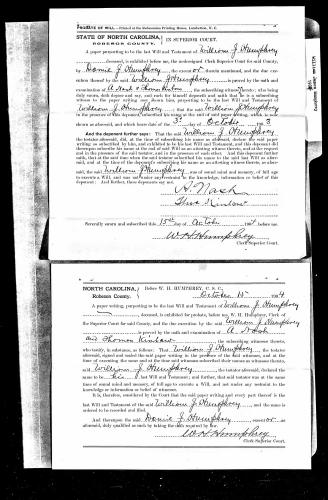 PROBATE OF WILL.—Printed at the Robesonian Printing House, Lumberton, N. C.
STATE OF NORTH CAROLINA,
ROBESON COUNTY.
IN SUPERIOR COURT.
A paper purporting to be the last Will and Testament of William J Humphrey
deceased, is exhibited before me, the undersigned Clerk Superior Court for said County, by
J Humphrey the executor therein mentioned, and the due exe-
cution thereof by the said William J Humphrey is proved by the oath and
examination of A Nash & the subscribing witnesses thereto; who being
duly sworn, doth depose and say, and each for himself deposeth and saith that he is a subscribing
witness to the paper writing now shown him, purporting to be the last Will and Testament of
William J Humphrey that the said William J Humphrey
in the presence of this deponent, subscribed his name at the end of said paper writing, which is now
shown as aforesaid, and which bears date of the 3rd day of October
And the deponent further says That the said William J Humphrey
the testator aforesaid, did, at the time of subscribing his name as aforesaid, declare the said paper
writing so subscribed by him, and exhibited to be his last Will and Testament, and this deponent did
thereupon subscribe his name at the end of said Will as an attesting witness thereto, and at the request
and in the presence of the said testator, and in the presence of each other. And this deponent further
saith, that at the time when the said testator subscribed his name to the said last Will as afore-
said, and at the time of the deponent's subscribing his name as an attesting witness thereto, as afore-
said, the said William J Humphrey was of sound mind and memory, of full age
to execute a Will, and was not under any restraint to the knowledge, information or belief of this
deponent: And further, these deponents say not.
A. Nash
Severally sworn and subscribed this 15th day of October 1904 before me
W H Humphrey
Clerk Superior Court.
NORTH CAROLINA,
Robeson County.
Before W. H. HUMPHREY, C. S. C.
October 15 1904
A paper writing, purporting to be the last Will and Testament of William J Humphrey
deceased, is exhibited for probate, before me W. H. Humphrey, Clerk of
the Superior Court for said County, and the due execution by the said William J Humphrey
is proved by the oath and examination of A Nash
and Thomas the subscribing witnesses thereto,
who testify, in substance, as follows: That William J Humphrey, the testator
aforesaid, signed and sealed the said paper writing in the presence of the said witnesses, and at the
time of executing the same and at the time said witnesses subscribed their names as witnesses thereto,
said William J Humphrey, the testator aforesaid, declared the
same to be his last Will and Testament; and further, that said testator was at the same
time of sound mind and memory, of full age to execute a Will, and not under any restraint to the
knowledge or information or belief of witnesses.
It is, therefore, considered by the Court that said paper writing and every part thereof is the
last Will and Testament of the said William J Humphrey and the same is
ordered to be recorded and filed.
And thereupon the said J Humphrey executor as
aforesaid, duly qualified as such by taking the oath required by law.
W H Humphrey
Clerk Superior Court.